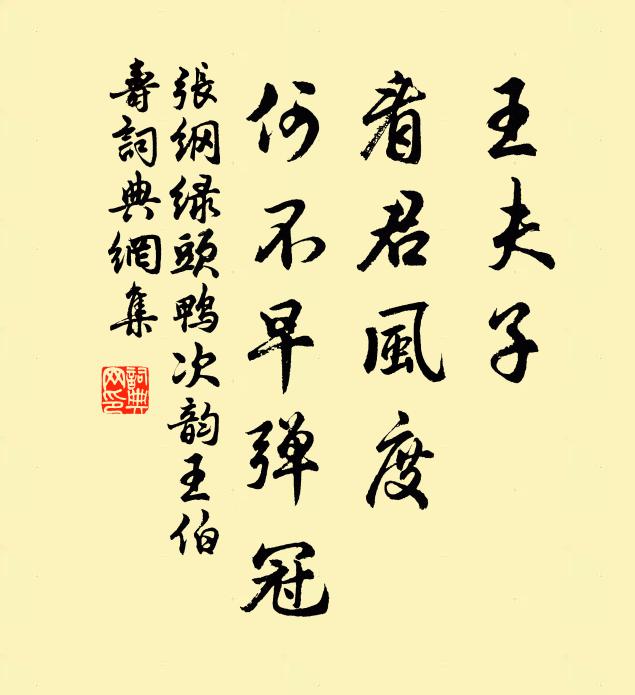 王夫子
看君風度
何不早弹冠
張綱绿頭鴨次韵王伯
壽詞典網集
詞典
网印